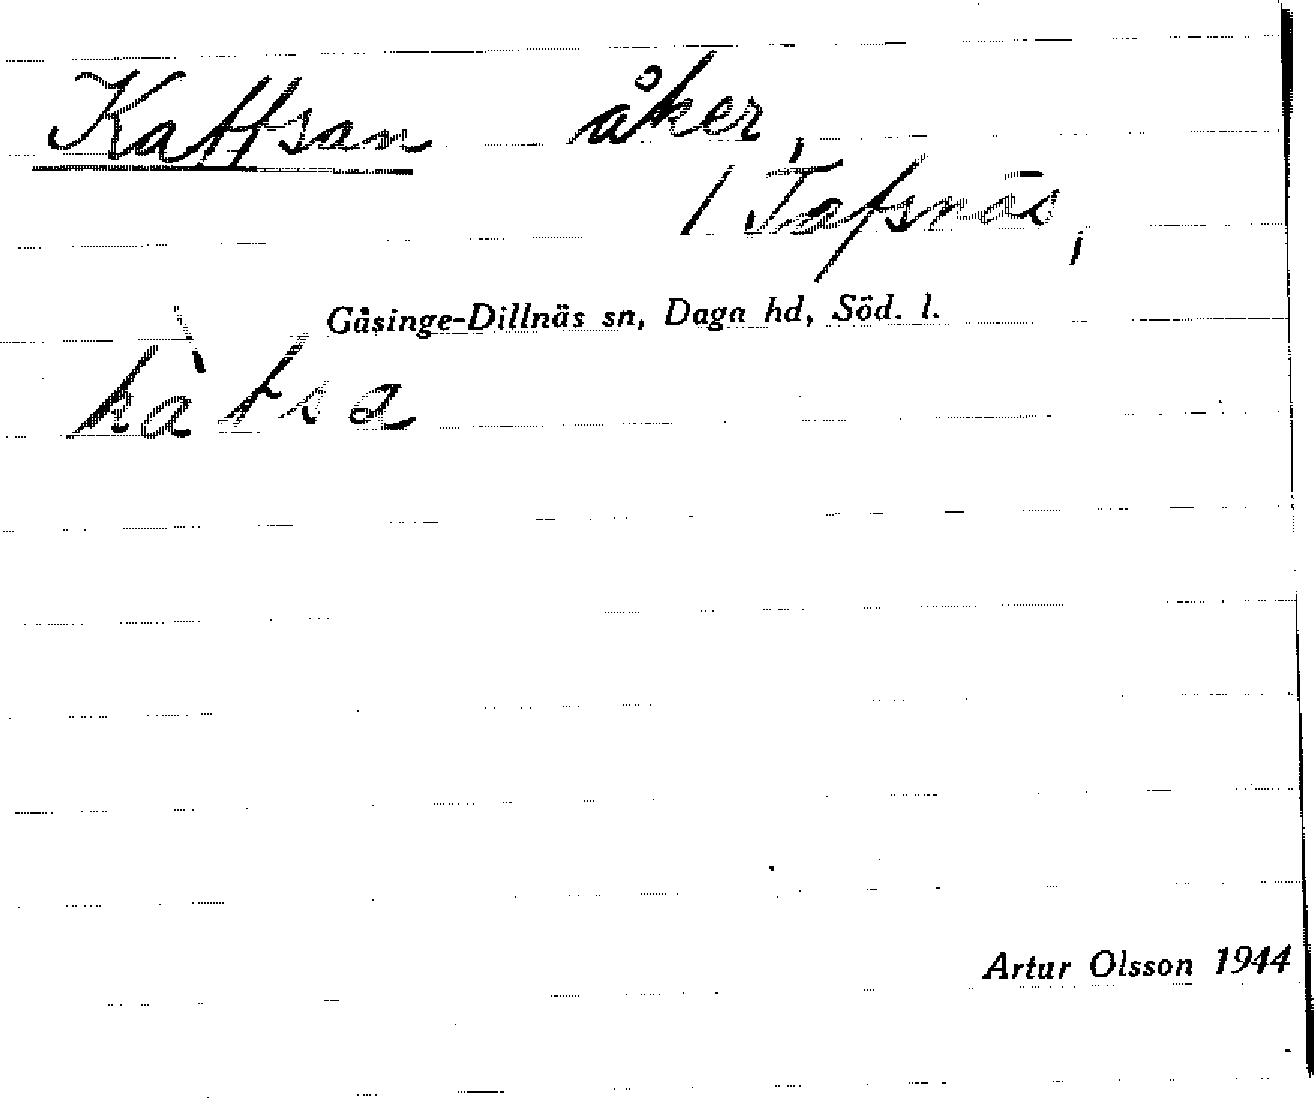 Kattsan åker,
1 Tapsnäs,
Gåsinge-Dillnäs sn, Daga hd, Söd. l.
kàtsa
Artur Olsson 1944